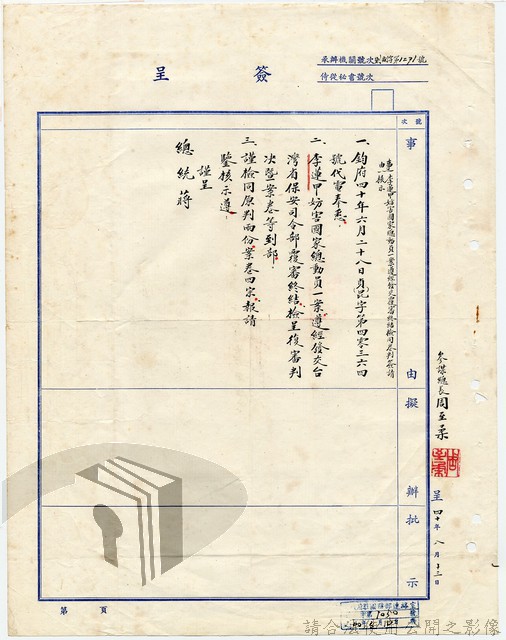 簽呈
承辦機關號次
侍從秘書號次
號次
事由
擬辦
批示
為李運甲妨害國家總動員一案遵經發交覆審終結檢同卷判簽請
由核示
一、鈞府四十年六月二十八日貞(昆)字第四零三六四
號代電奉悉
二、李運甲妨害國家總動員一案遵經發交台
灣省保安司令部覆審終結檢呈復審判
次暨案卷等到部
三、謹檢同原判兩份案卷四宗報請
鑒核示遵
謹呈
總統蔣
參謀總長周至柔
呈四十年八月十三日
第 頁
請合法使用公開之影像